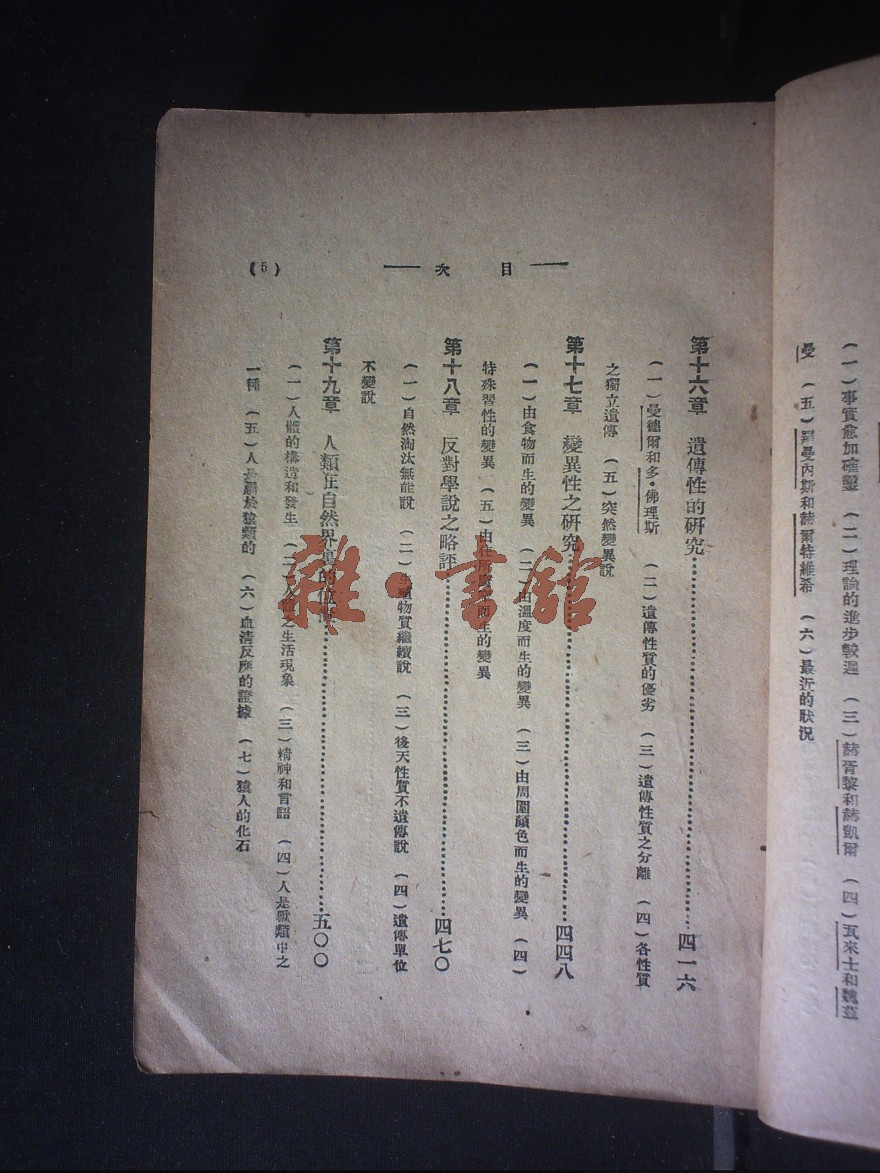 (一)事實愈加確鑿　(二)理論的進步較遲　(三)赫胥黎和赫凱爾　(四)瓦來士和魏茲
曼　(五)羅曼內斯和赫爾特維希　(六)最近的狀況
目　次
(5)
第十六章　遺傳性的研究……………四一六
(一)曼德爾和多・佛理斯　(二)遺傳性質的優劣　(三)遺傳性質之分離　(四)各性質
之獨立遺傳　(五)突然變異說
第十七章　變異性之研究……………四四八
(一)由食物而生的變異　(二)由溫度而生的變異　(三)由周圍顏色而生的變異　(四)
特殊習性的變異　(五)由住所廣窄而生的變異
第十八章　反對學說之略評……………四七〇
(一)自然淘汰無能說　(二)生殖物質繼續說　(三)後天性質不遺傳說　(四)遺傳單位
不變說
第十九章　人類在自然界裏的位置……………五〇〇
(一)人體的構造和發生　(二)人體之生活現象　(三)精神和言語　(四)人是獸類中之
一種　(五)人是屬於猿類的　(六)血清反應的證據　(七)猿人的化石
雜・書館